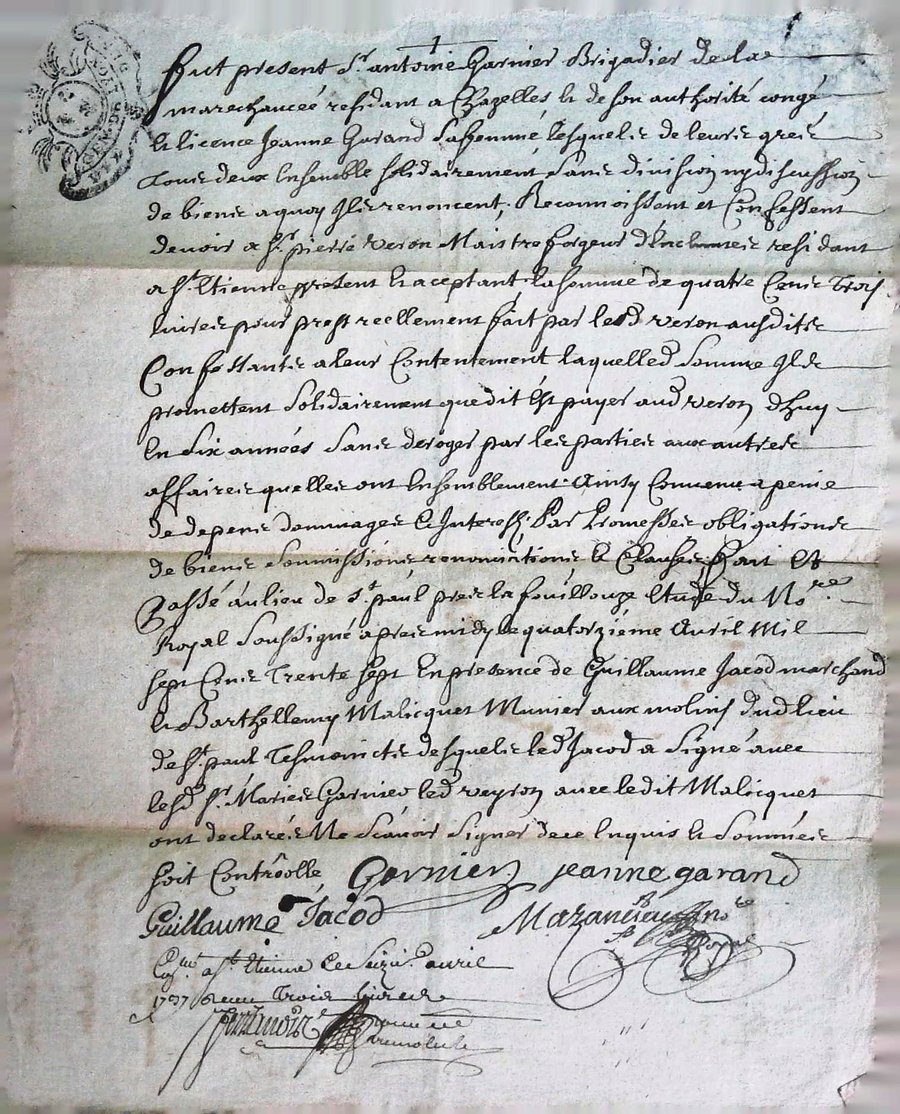 fut present Sr antoine Garnier Brigadier de la
marechauceé residant a Chazelles & de son authorité congé
& licence Jeanne Garand sa femme, lesquelz de leurs grez
tous deux Ensemble solidairement sans division ny discussion
de biens a quoy Ilz renoncent, Reconnoissent et Confessent
devoir a Sr pierre veron Maistre forgeur d'Enclumes residant
a St Etienne present & aceptant la somme de quatre Cens Trois
livres pour prest reellement fait par led veron ausdits
Confessants a leur Contentement laquelled somme Ilz
promettent solidairement que dit Est payer aud veron d'huy
En six années sans deroger par les parties aux autres
affaires quelles ont Ensemblement ainsy Convenu a peine
de depens dommages & Interest, Par Promesses obligations
de biens soumissions renonciations & Clauses, Fait Et
Passé au lieu de St paul pres la fouillouze Etude du Nore
Royal soussigné apres midy le quatorzième Avril Mil
sept Cens Trente sept En presence de Guillaume Jacod marchand
& Barthellemy Malicquet Munier aux molins dud lieu
de St paul Tesmoins desquels led Jacod a signé avec
lesd Sr Mariés Garnier led veyron avec ledit Malicquet
ont declarés Ne scavoir signer de ce Enquis & Sommés
soit Contrôolle Garnier jeanne garand
Guillaume Jacod Mazancieu nore
Royal
Conlé a St Etienne le seize avril
1737 Receu Trois livres